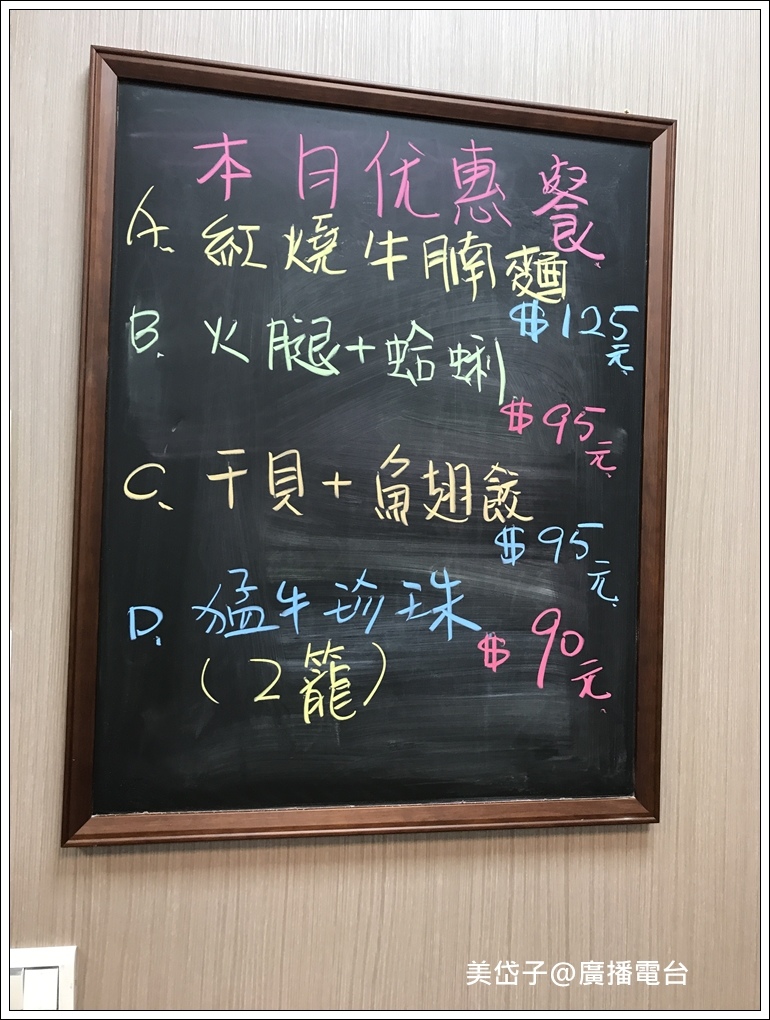 本月优惠餐
A. 紅燒牛腩麵
$125元
B. 火腿+蛤蜊
$95元
C. 干貝+魚翅餃
$95元
D. 猛牛珍珠
$90元
(2籠)
美岱子@廣播電台